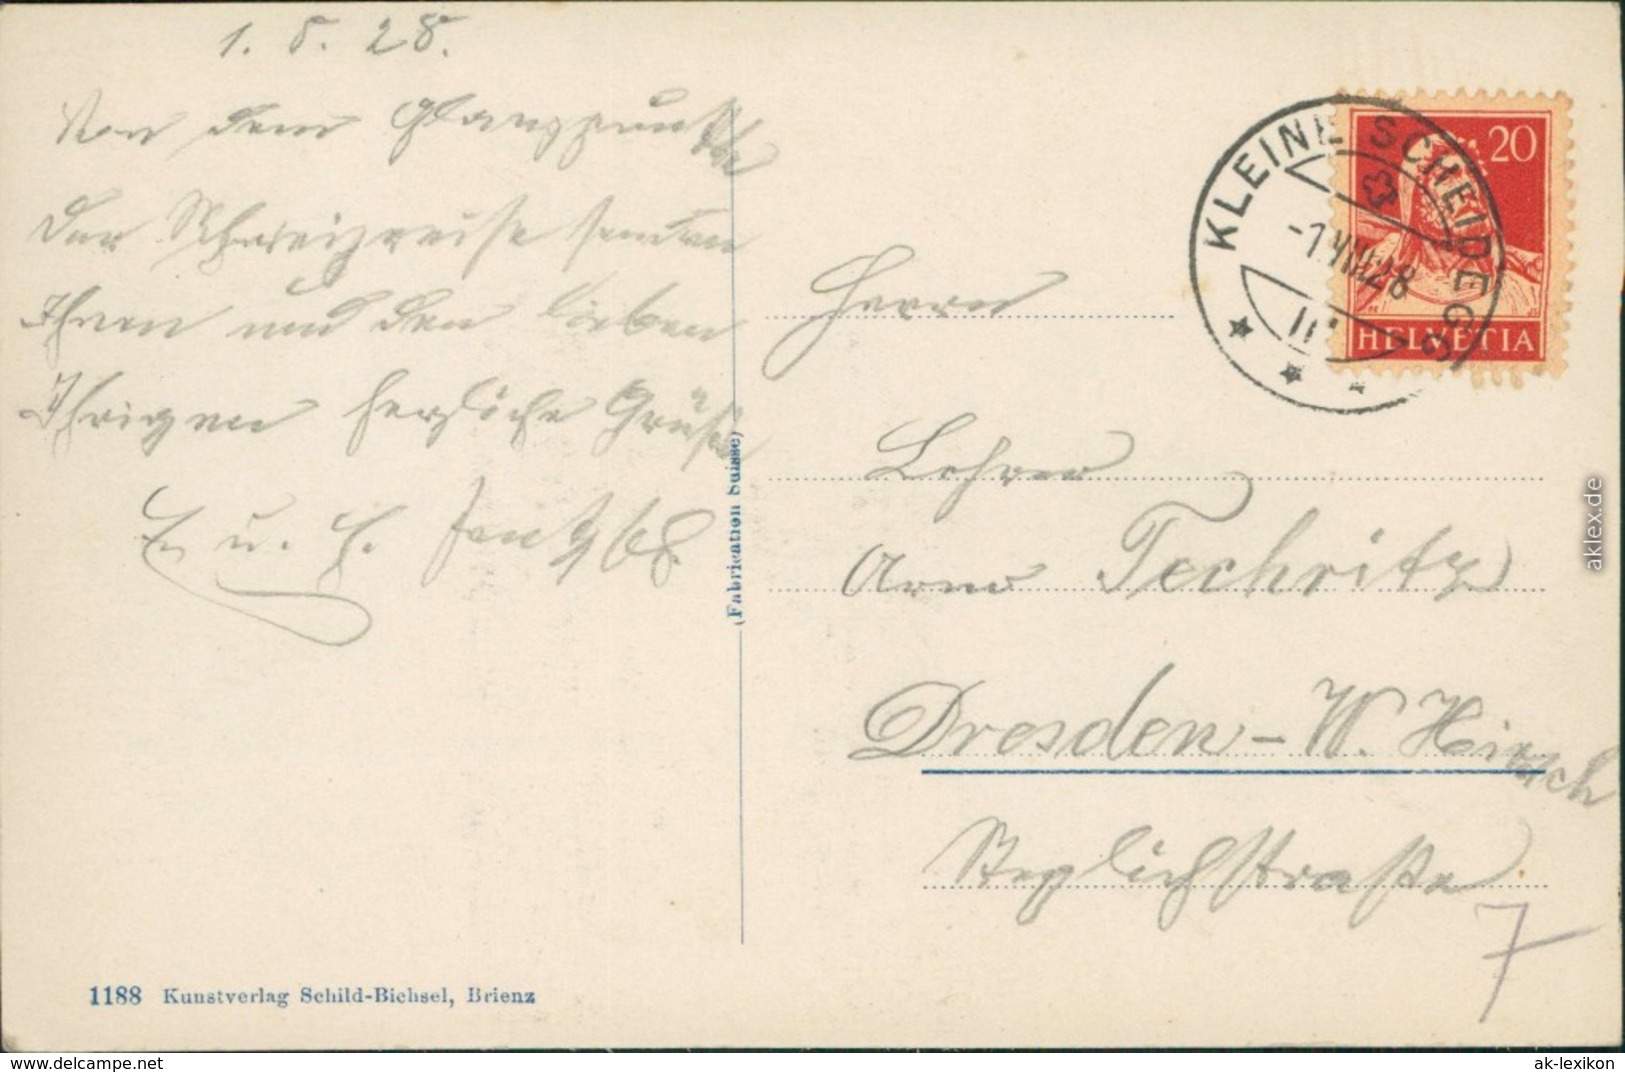 1. 8. 28.
Von dem Glanzpunkte
der Schweizreise senden
Ihnen und den lieben
Ihrigen herzliche Grüße
u.
Herrn
Lehrer
Arno Techritz
Dresden – W. Hirsch
straße
7
20
HELVETIA
KLEINE SCHEIDEGG
-1.VIII.28
(Fabrication Suisse)
1188 Kunstverlag Schild-Bichsel, Brienz
aklex.de
www.delcampe.net
ak-lexikon